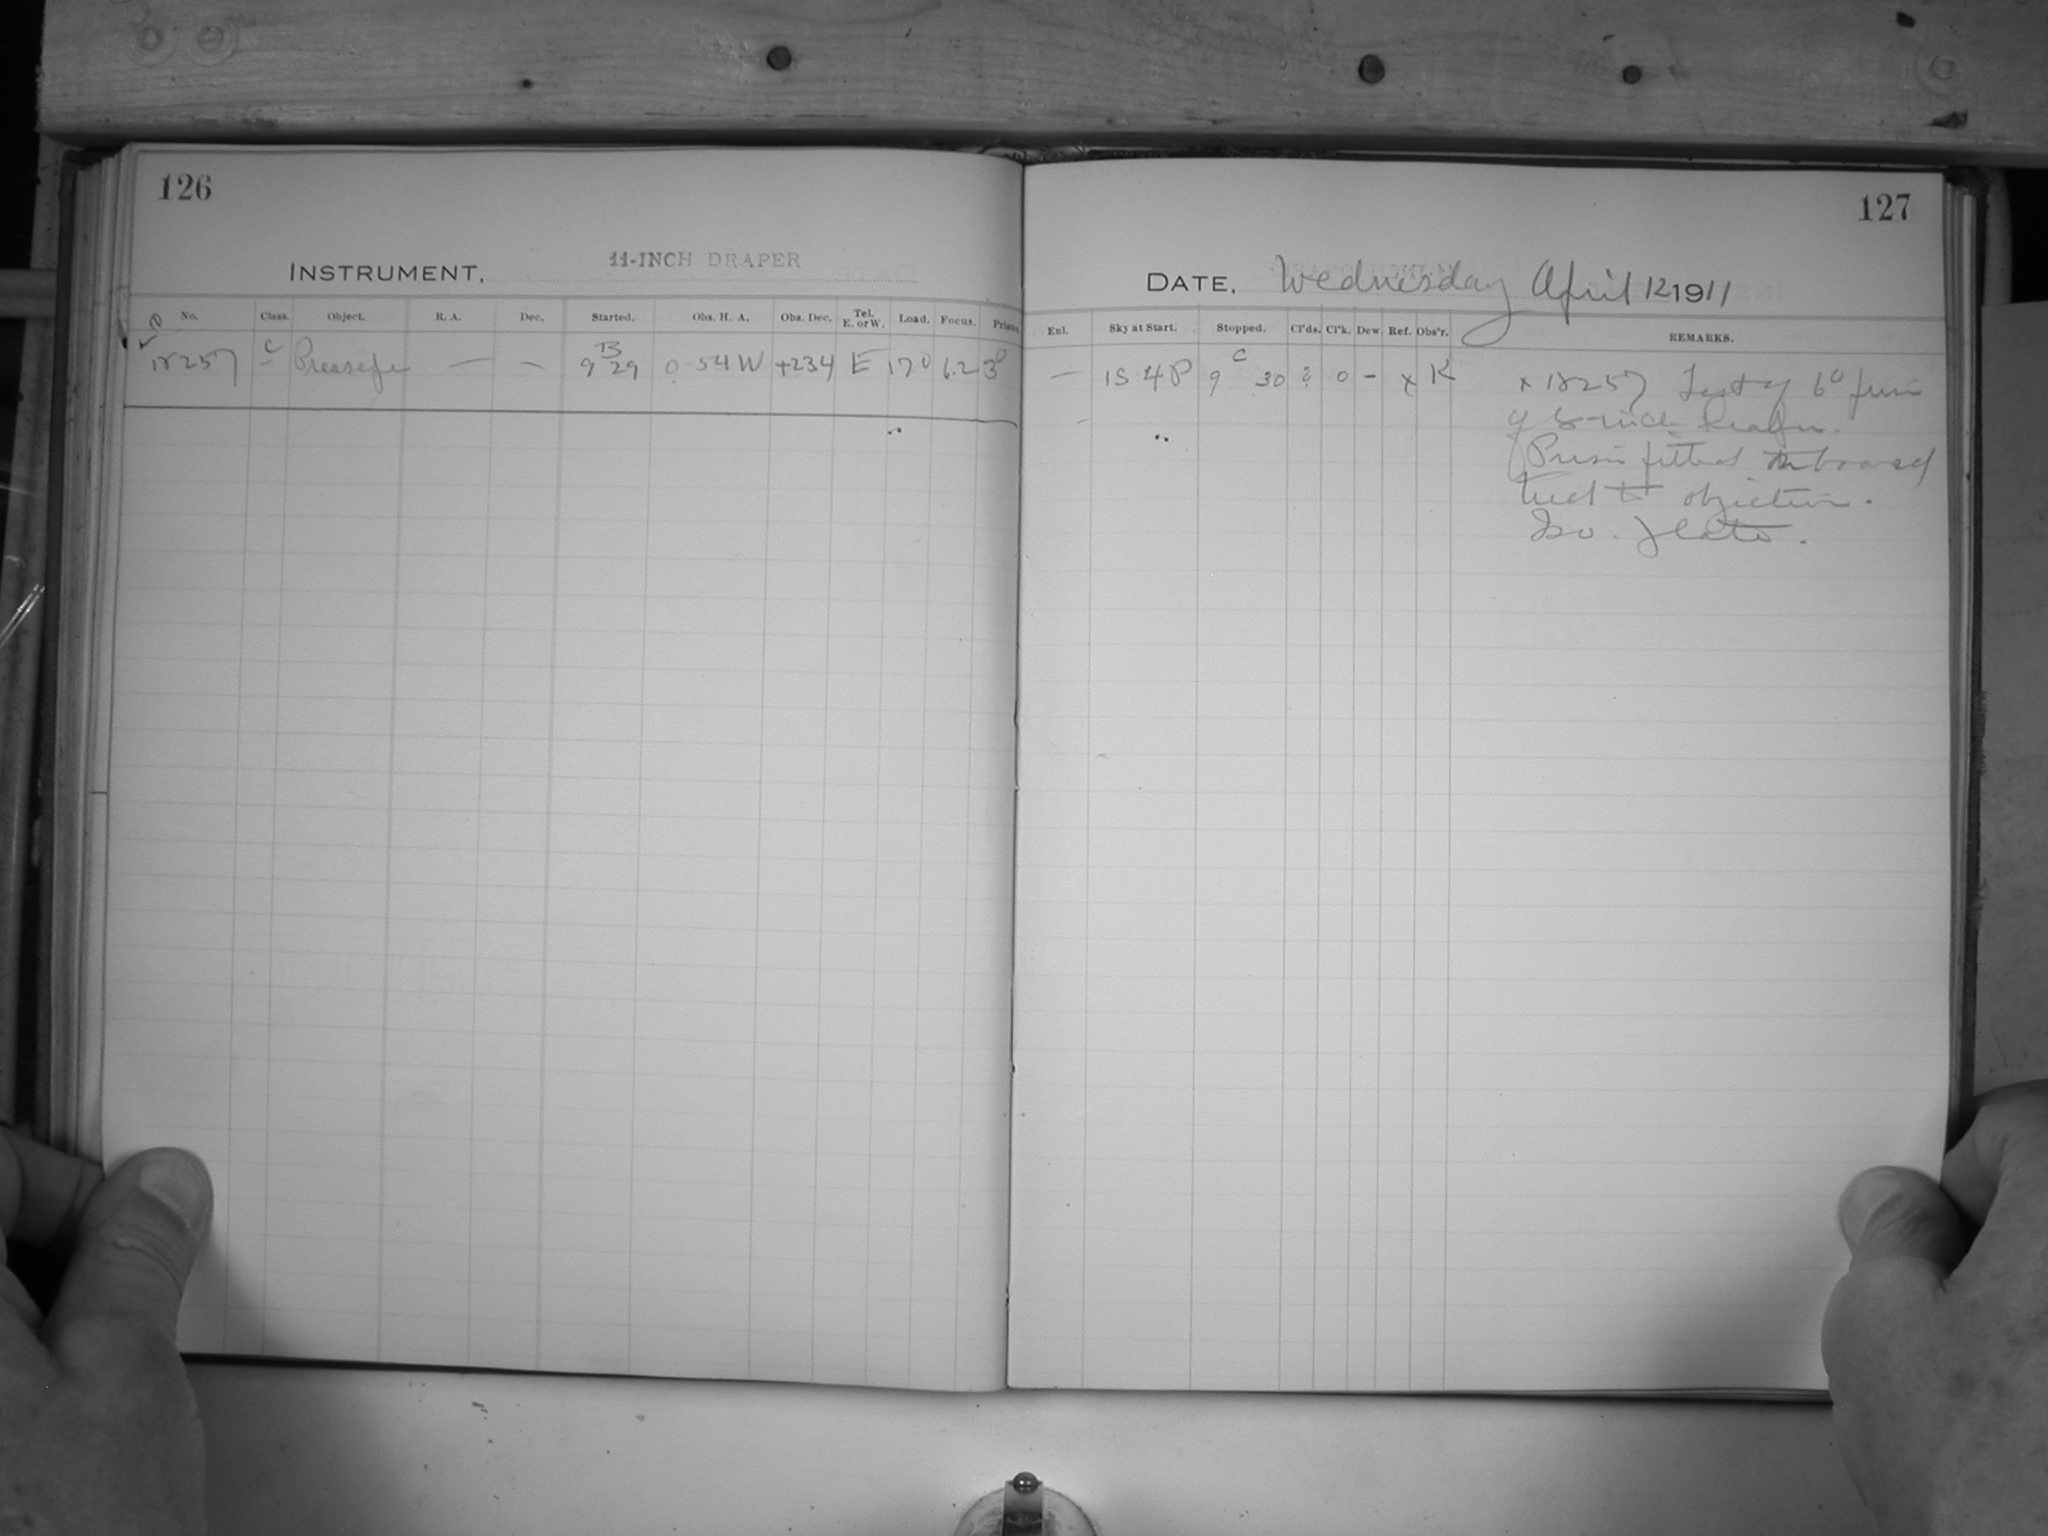 126
INSTRUMENT. 11-INCH DRAPER
No. Class. Object. R. A. Dec. Started. Obs. H. A. Obs. Dec. Tel. E. or W. Load. Focus. Prism
C B
18257 Praesepe — — 9 29 0 54 W +23.4 E 170 6.2 3P
127
DATE. Wednesday April 12 1911
Enl. Sky at Start. Stopped. Cl'ds. Cl'k. Dew. Ref. Obs'r. REMARKS.
C
— 1S 4P 9 30 ? 0 - x K
x 18257 Test of 6°
of 8-inch Draper.
Prism fitted board
tied to objective.
Iso. Plate.